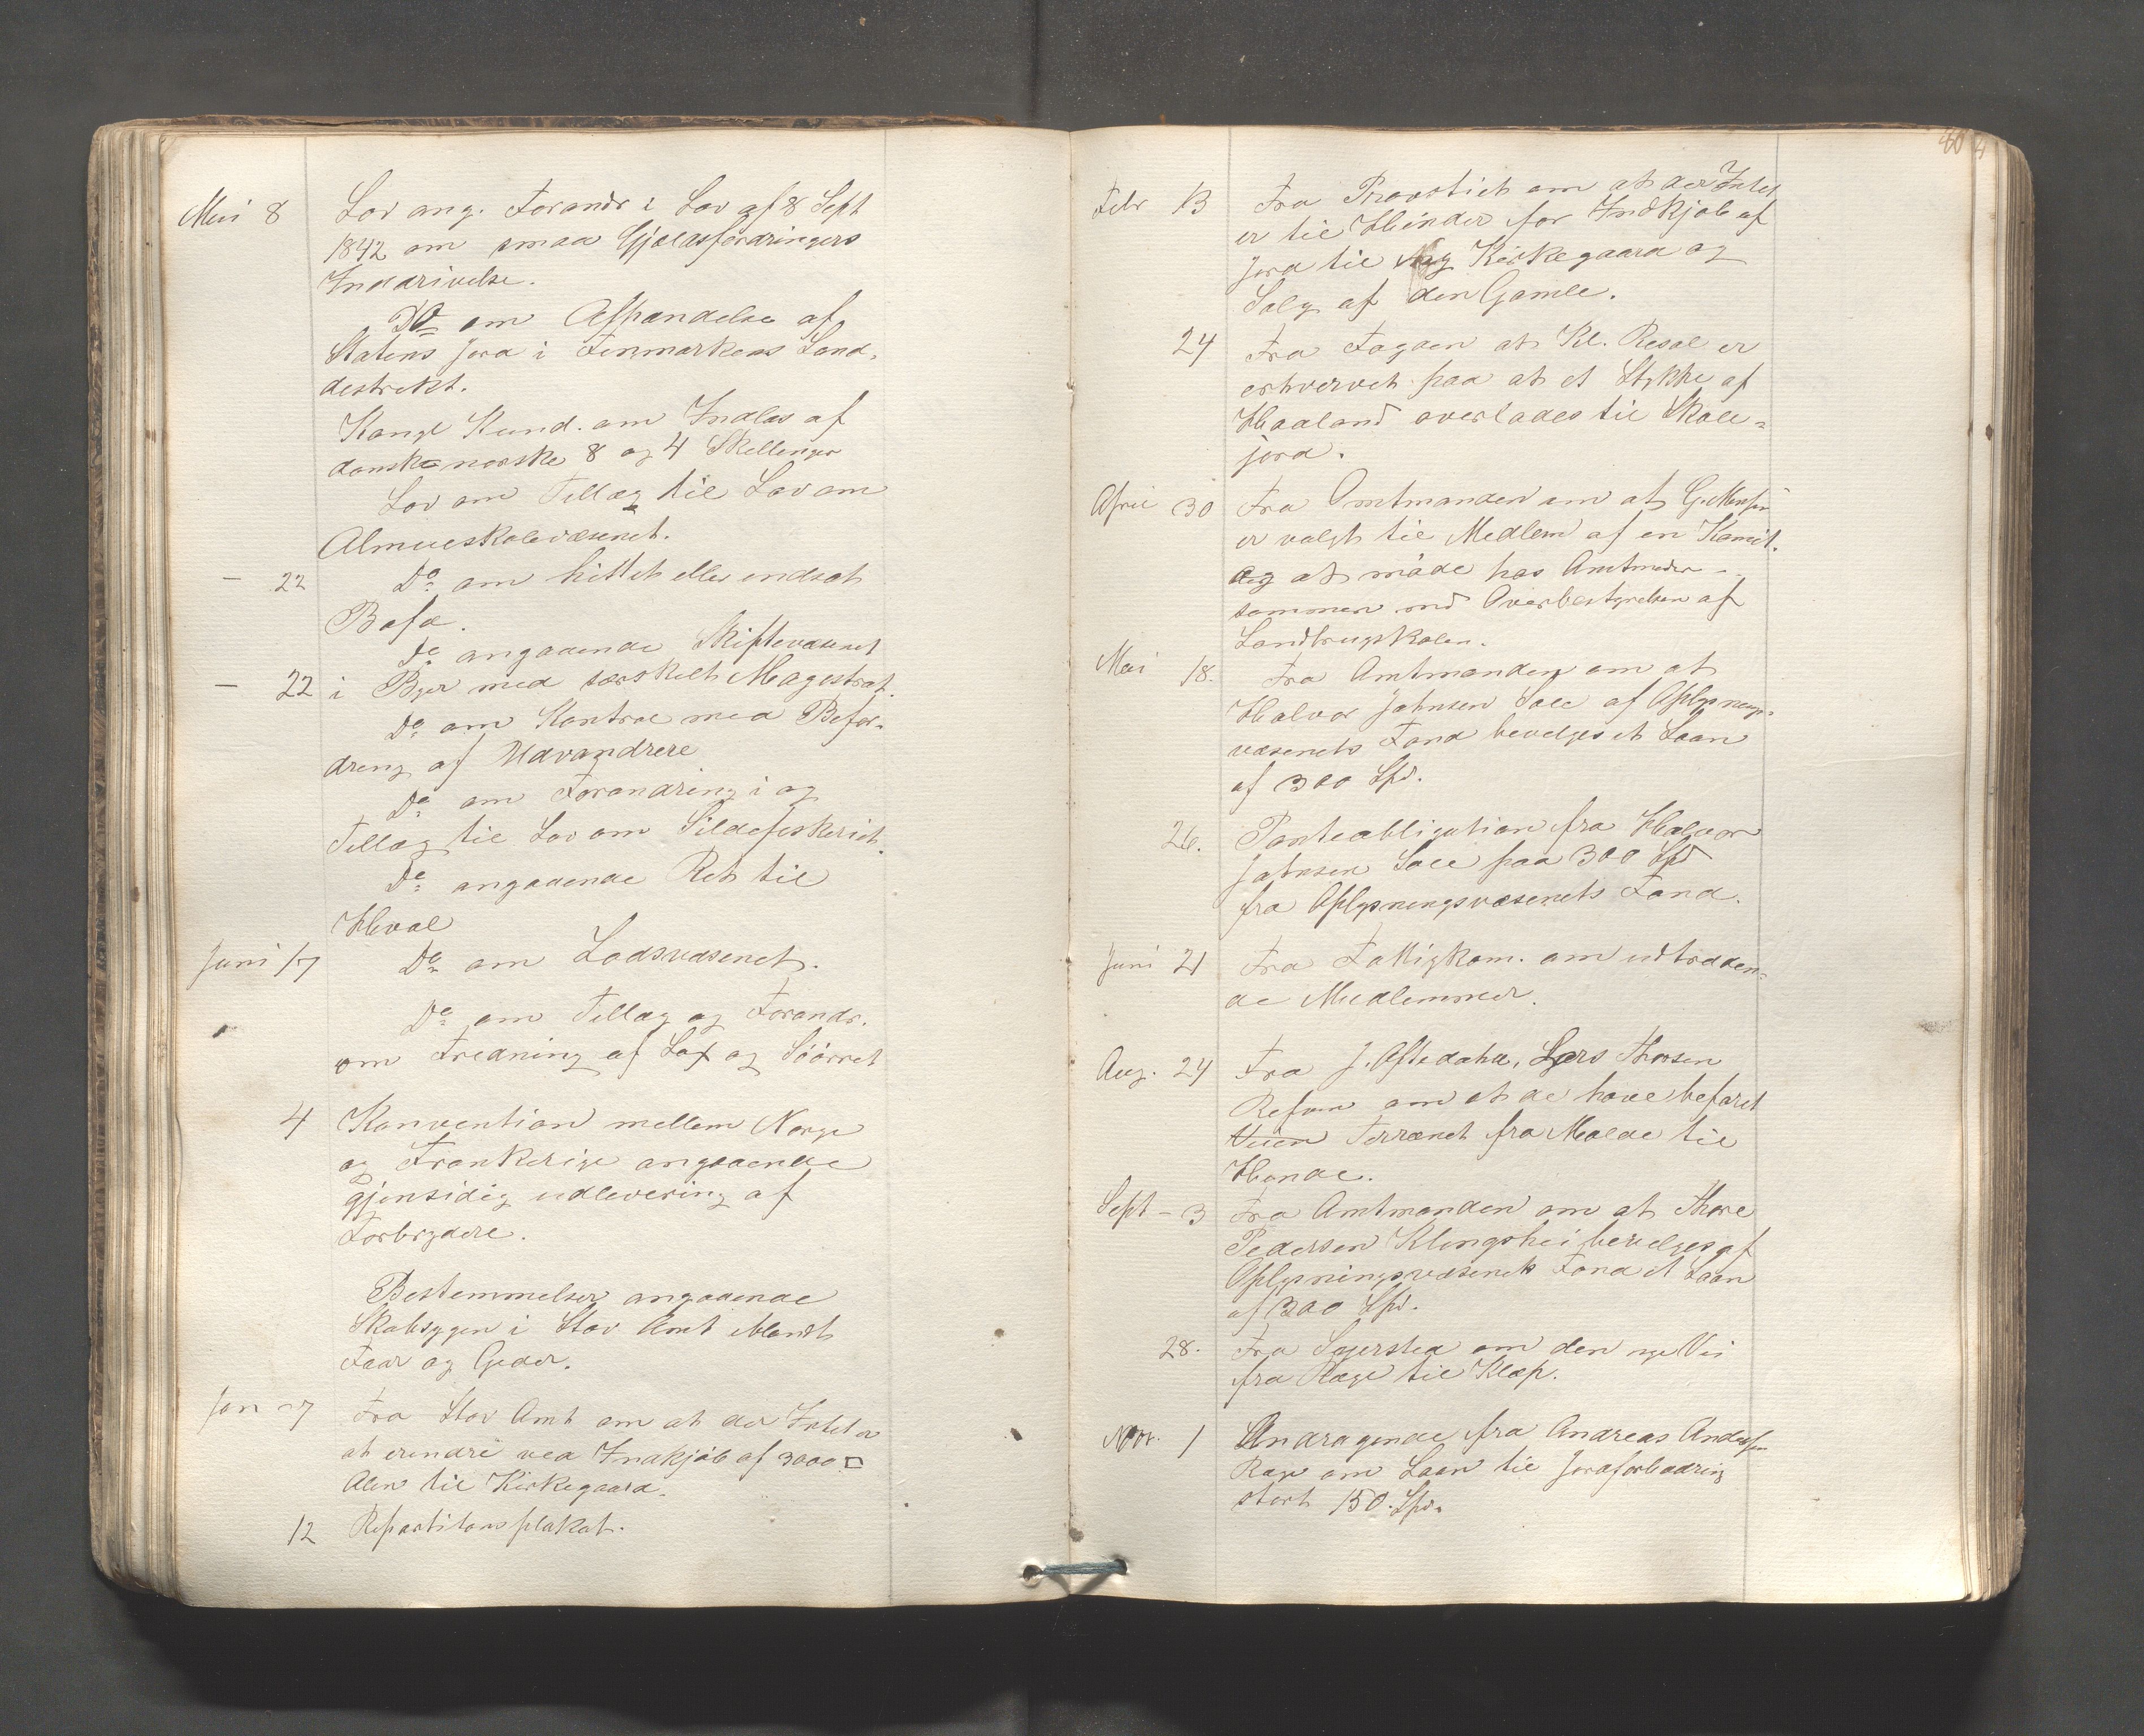 Mai 8 Lov ang. Forandr i Lov af 8 Sept
1842 om smaa Gjældsfordringers
Inddrivelse.
Do om Afhændelse af
Statens Jord i Finmarkens Land-
destrikt.
Kongl Kund. om Indløs af
dansk norske 8 og 4 Skillinger
Lov om Tillæg til Lov om
Almueskolevæsenet.
— 22 Do om hittet eller indsat
Bofæ.
Do angaaende Skiftevæsenet
— 22 i Byer med særskilt Magistrat.
Do om Kontrol med Befor-
dring af Udvandrere
Do om Forandring i og
Tillæg til Lov om Sildefiskeriet.
Do angaaende Ret til
Hval
Juni 17 Do om Lodsvæsenet.
Do om Tillæg og Forandr.
om Fredning af Lax og Söörret
4 Konvention mellem Norge
og Frankerige angaaende
gjensidig udlevering af
Forbrydere.
Bestemmelser angaaende
Skabsygen i Stav Amt blandt
Faar og Geder.
Jan 7 Fra Stav Amt om at der Intet er
at erindre ved Indkjöb af 3000 □
Alen til Kirkegaard.
12 Repartitons plakat.
Febr 13 Fra Provstiet om at der Intet
er til Hinder for Indkjöb af
Jord til Ny Kirkegaard og
Salg af den Gamle.
24 Fra Fogden at Kl. Resol er
erhvervet paa at et Stykke af
Haaland overlades til Skole-
jord.
April 30 Fra Amtmanden om at G.
er valgt til Medlem af en Komit.
og at møde hos Amtmanden
sammen med Overbestyrelsen af
Landbrugskolen.
Mai 18. Fra Amtmanden om at
Halvor Johnsen Sole af Oplysnings-
væsenets Fond bevelges et Laan
af 300 Spd.
26. Panteobligation fra Halvor
Johnsen Sole paa 300 Spd
fra Oplysningsvæsenets Fond.
Juni 21 Fra Fattigkom. om udtræden-
de Medlemmer.
Aug. 24 Fra J. Aftedahl, Lars Thorsen
Refsnes om at de have befaret
Veien Terrænet fra Malde til
Hende.
Sept — 3 Fra Amtmanden om at Thore
Pedersen Klingshei bevelges af
Oplysningsvæsenets Fond et Laan
af 300 Spd.
28. Fra Sejersted om den nye Vei
fra Rægе til Klep.
Nov. 1 Andragende fra Andreas Andersen
Rægе om Laan til Jordforbedring
stort 150. Spd.